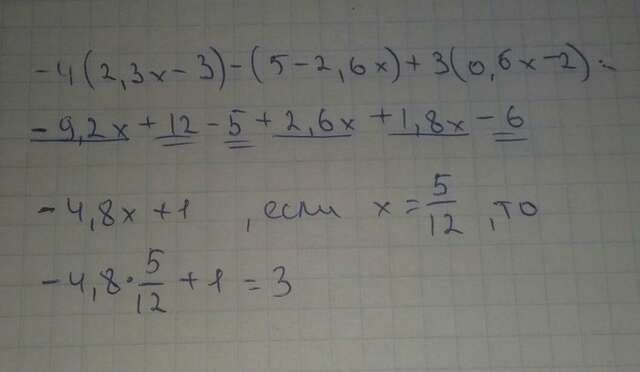 -4(2,3x-3)-(5-2,6x)+3(0,6x-2)=
-9,2x+12-5+2,6x+1,8x-6
-4,8x+1, если x=5/12, то
-4,8·5/12+1=3